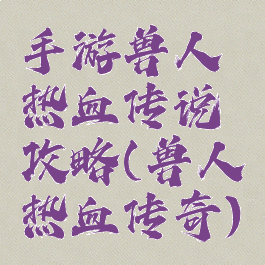 手游兽人
热血传说
攻略(兽人
热血传奇)